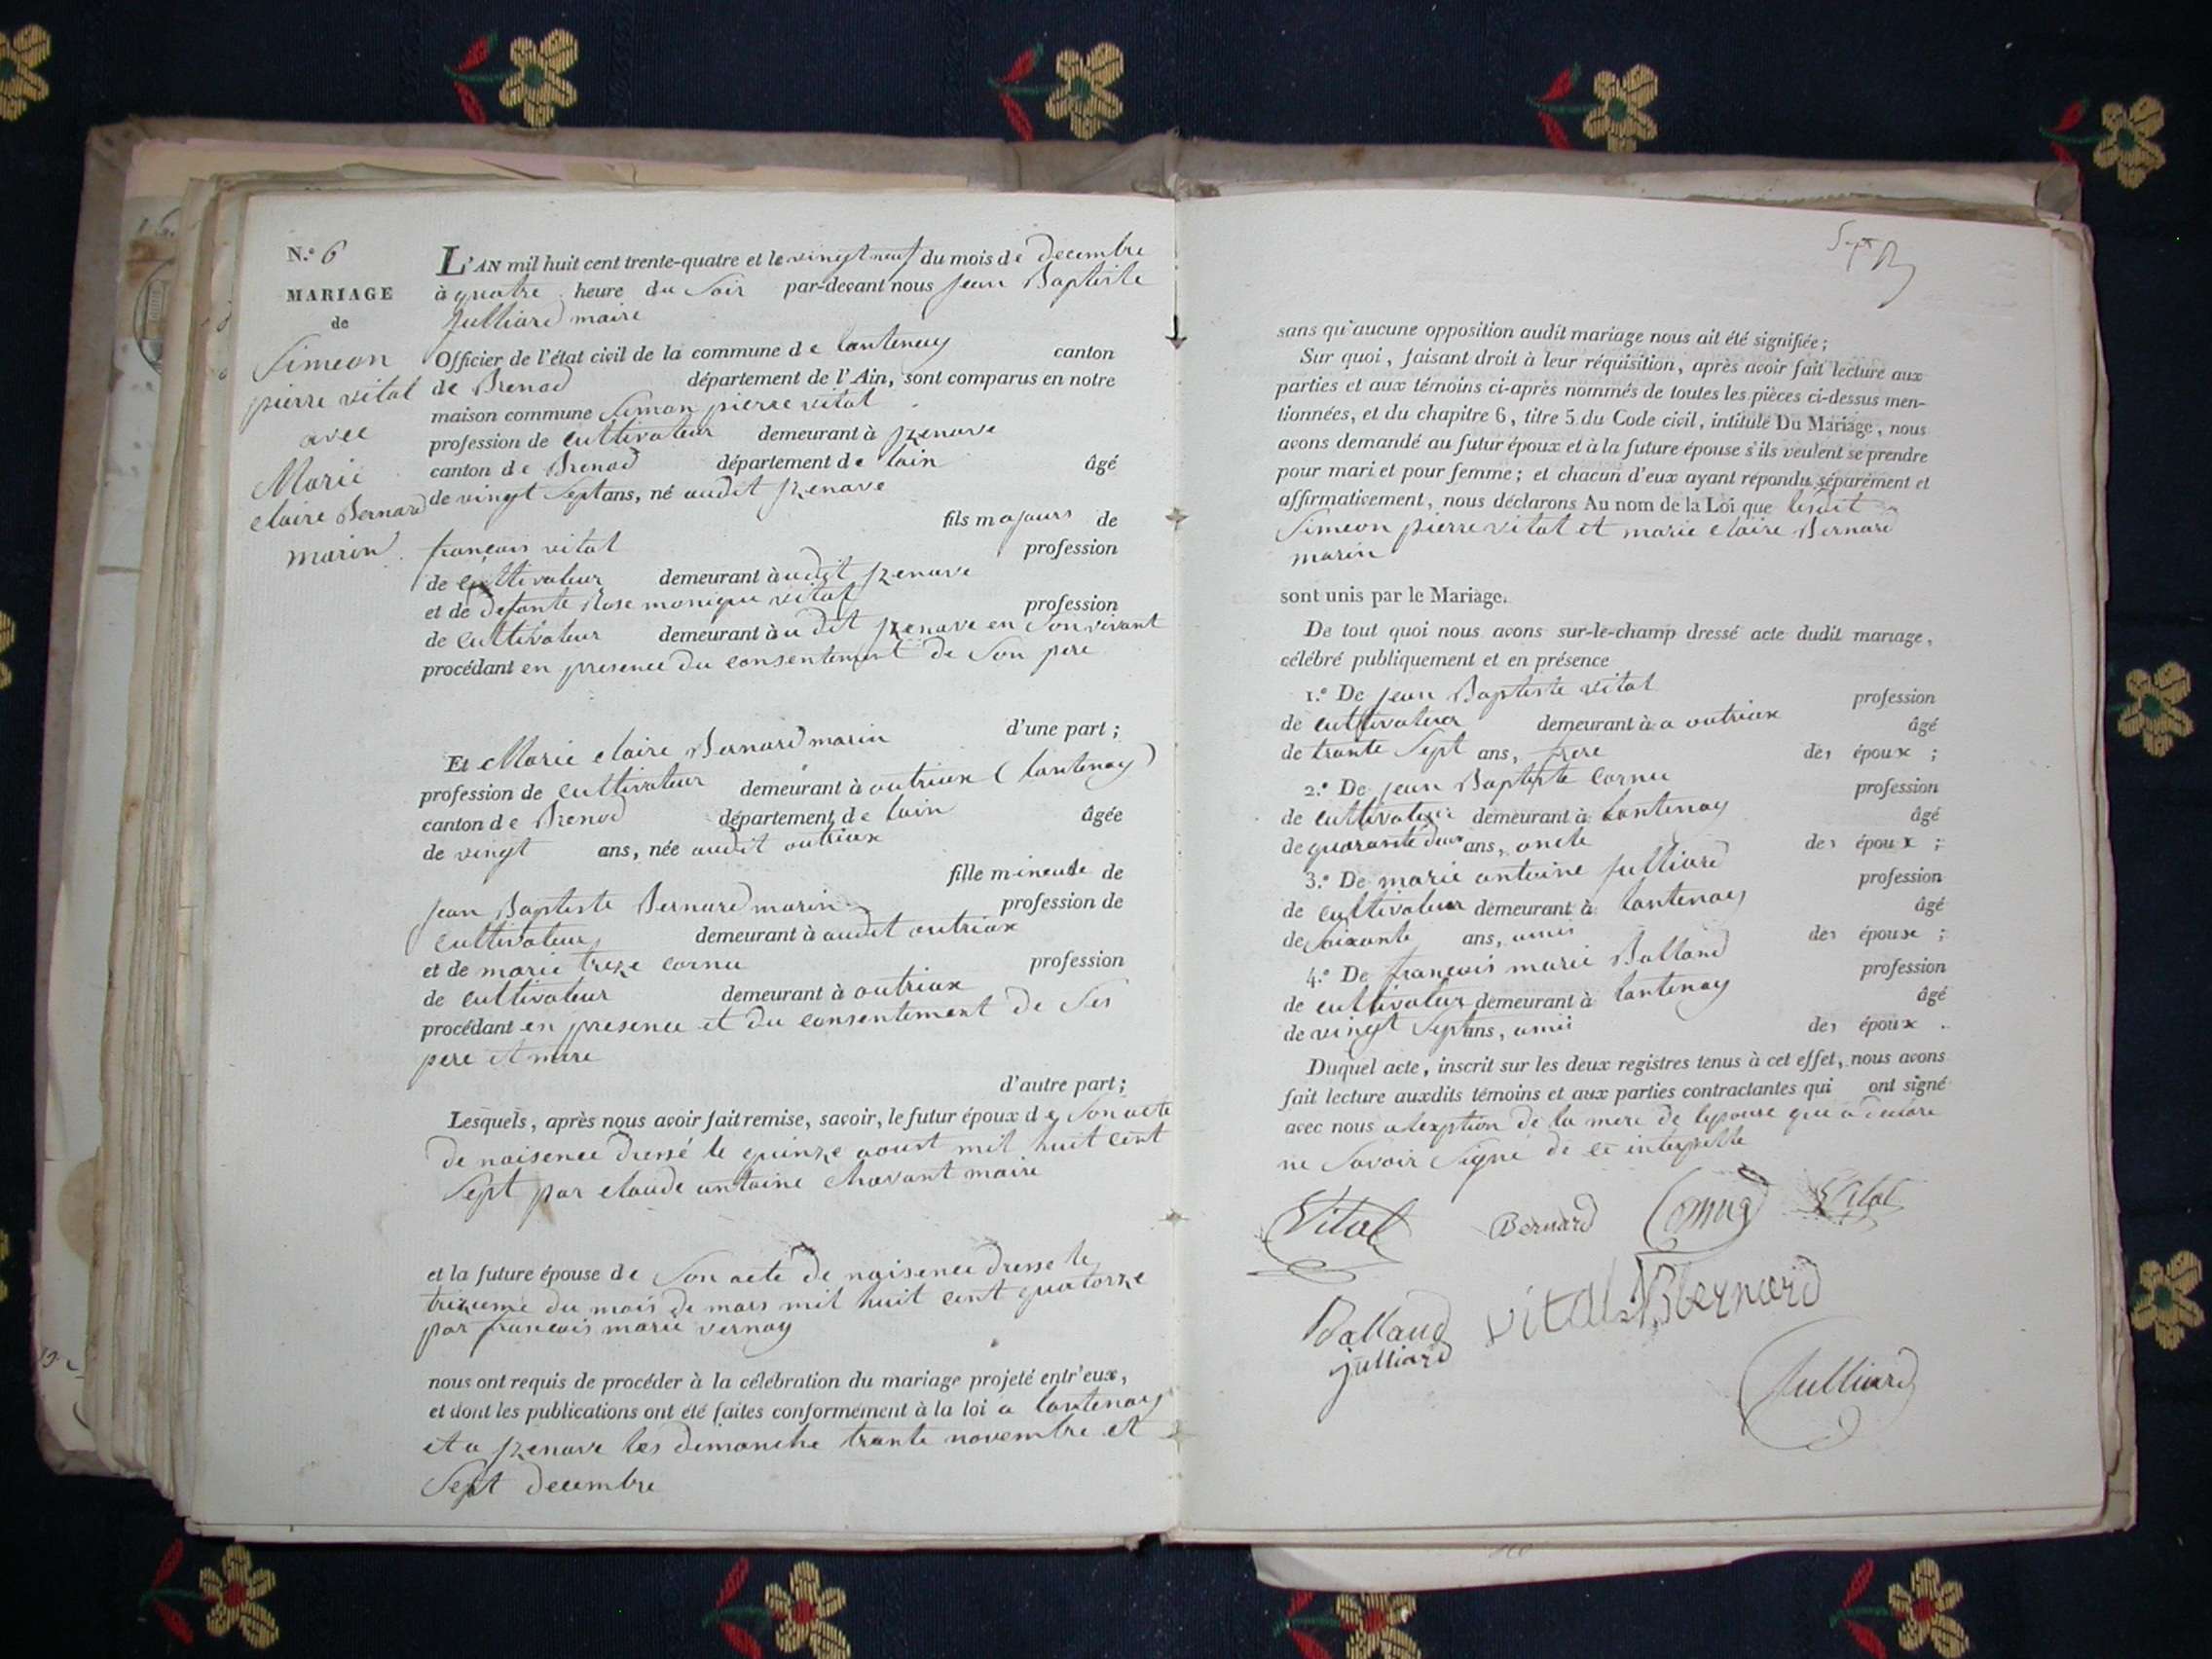 N.º 6
MARIAGE
de
Simeon
pierre vital
avec
Marie
claire Bernard
marin
L'AN mil huit cent trente-quatre et le vingt neuf du mois de decembre
à quatre heure du Soir par-devant nous jean Baptiste
julliard maire
Officier de l'état civil de la commune de Lantenay canton
de Brenod département de l'Ain, sont comparus en notre
maison commune Simon pierre vital
profession de cultivateur demeurant à izenave
canton de Brenod département de lain âgé
de vingt Sept ans, né audit izenave
fils majeurs de
françois vital profession
de cultivateur demeurant à udit izenave
et de defante Rose monique vital profession
de cultivateur demeurant à u dit izenave en Son vivant
procédant en presence du consentement de Son pere
d'une part ;
Et Marie claire Bernard marin
profession de cultivateur demeurant à outriax ( lantenay )
canton de Brenod département de lain âgée
de vingt ans, née audit outriax
fille mineure de
jean Baptiste Bernard marin profession de
cultivateur demeurant à audit outriax
et de marie treze cornu profession
de cultivateur demeurant à outriax
procédant en presence et du consentement de Ses
pere et mere
d'autre part ;
Lesquels, après nous avoir fait remise, savoir, le futur époux de Son acte
de naisence dressé le quinze aoust mil huit cent
Sept par claude antoine Chavant maire
et la future épouse de Son acte de naisence dresse le
trizieme du mois de mars mil huit cent quatorze
par françois marie vernay
nous ont requis de procéder à la célébration du mariage projeté entr'eux,
et dont les publications ont été faites conformément à la loi a lantenay
et a izenave les dimanche trante novembre et
Sept decembre
Sept
sans qu'aucune opposition audit mariage nous ait été signifiée ;
Sur quoi, faisant droit à leur réquisition, après avoir fait lecture aux
parties et aux témoins ci-après nommés de toutes les pièces ci-dessus men-
tionnées, et du chapitre 6, titre 5 du Code civil, intitulé Du Mariage, nous
avons demandé au futur époux et à la future épouse s'ils veulent se prendre
pour mari et pour femme ; et chacun d'eux ayant répondu séparément et
affirmativement, nous déclarons Au nom de la Loi que
Simeon pierre vital et marie claire Bernard
marin
sont unis par le Mariage.
De tout quoi nous avons sur-le-champ dressé acte dudit mariage,
célébré publiquement et en présence
1.º De jean Baptiste vital profession
de cultivateur demeurant à a outriax âgé
de trante Sept ans, frere des époux ;
2.º De jean Baptiste Cornu profession
de cultivateur demeurant à Lantenay âgé
de quarante deux ans, oncle des époux ;
3.º De marie antoine julliard profession
de cultivateur demeurant à lantenay âgé
de Soixante ans, amis des époux ;
4.º De françois marie Balland profession
de cultivateur demeurant à lantenay âgé
de vingt Sept ans, amis des époux .
Duquel acte, inscrit sur les deux registres tenus à cet effet, nous avons
fait lecture auxdits témoins et aux parties contractantes qui ont signé
avec nous a lexption de la mere de lepouse qui a declare
ne Savoir Signé de ce interpelle
Vital Bernard Cornu Vital
Balland vital Bernard
julliard
Julliard